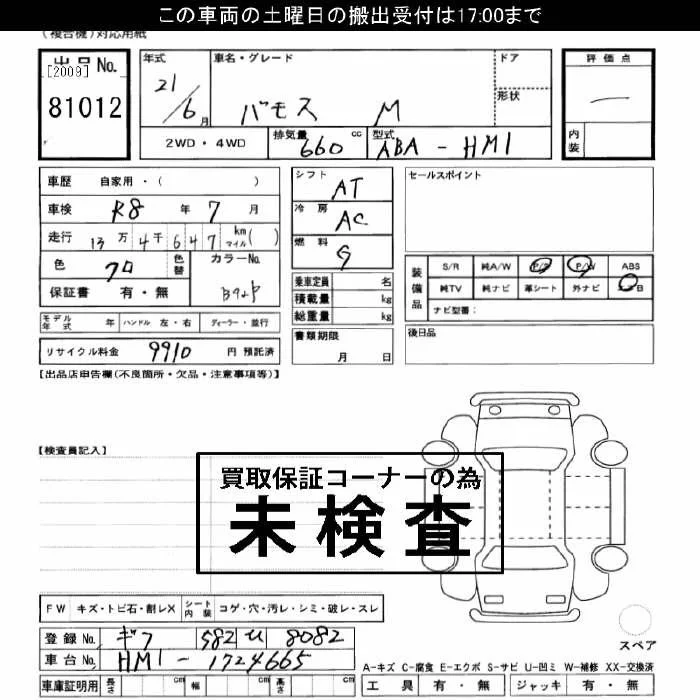 この車両の土曜日の搬出受付は17:00まで
(複合機)対応用紙
出品No. [2009] 81012
年式 21/6月
車名・グレード バモス M
ドア
形状
評価点 —
内装
2WD・4WD 排気量 660 cc 型式 ABA-HM1
車歴 自家用・( )
車検 R8 年 7 月
走行 13万4千647 km マイル( )
色 クロ 色替 カラーNo. B92P
保証書 有・無
モデル年式 年 ハンドル 左・右 ディーラー・並行
リサイクル料金 9910 円 預託済
シフト AT
冷房 AC
燃料 G
乗車定員 名
積載量 kg
総重量 kg
書類期限 月 日
セールスポイント
装備品 S/R 純A/W P/S P/W ABS
純TV 純ナビ 革シート 外ナビ
ナビ型番:
後日品
【出品店申告欄(不良箇所・欠品・注意事項等)】
【検査員記入】
買取保証コーナーの為
未検査
FW キズ・トビ石・割レX シート内装 コゲ・穴・汚レ・シミ・破レ・スレ
登録No. ギフ 582 u 8082
車台No. HM1-1724665
車庫証明用 長さ cm 幅 cm 高さ cm
スペア
A-キズ C-腐食 E-エクボ S-サビ U-凹ミ W-補修 XX-交換済
工具 有・無 ジャッキ 有・無